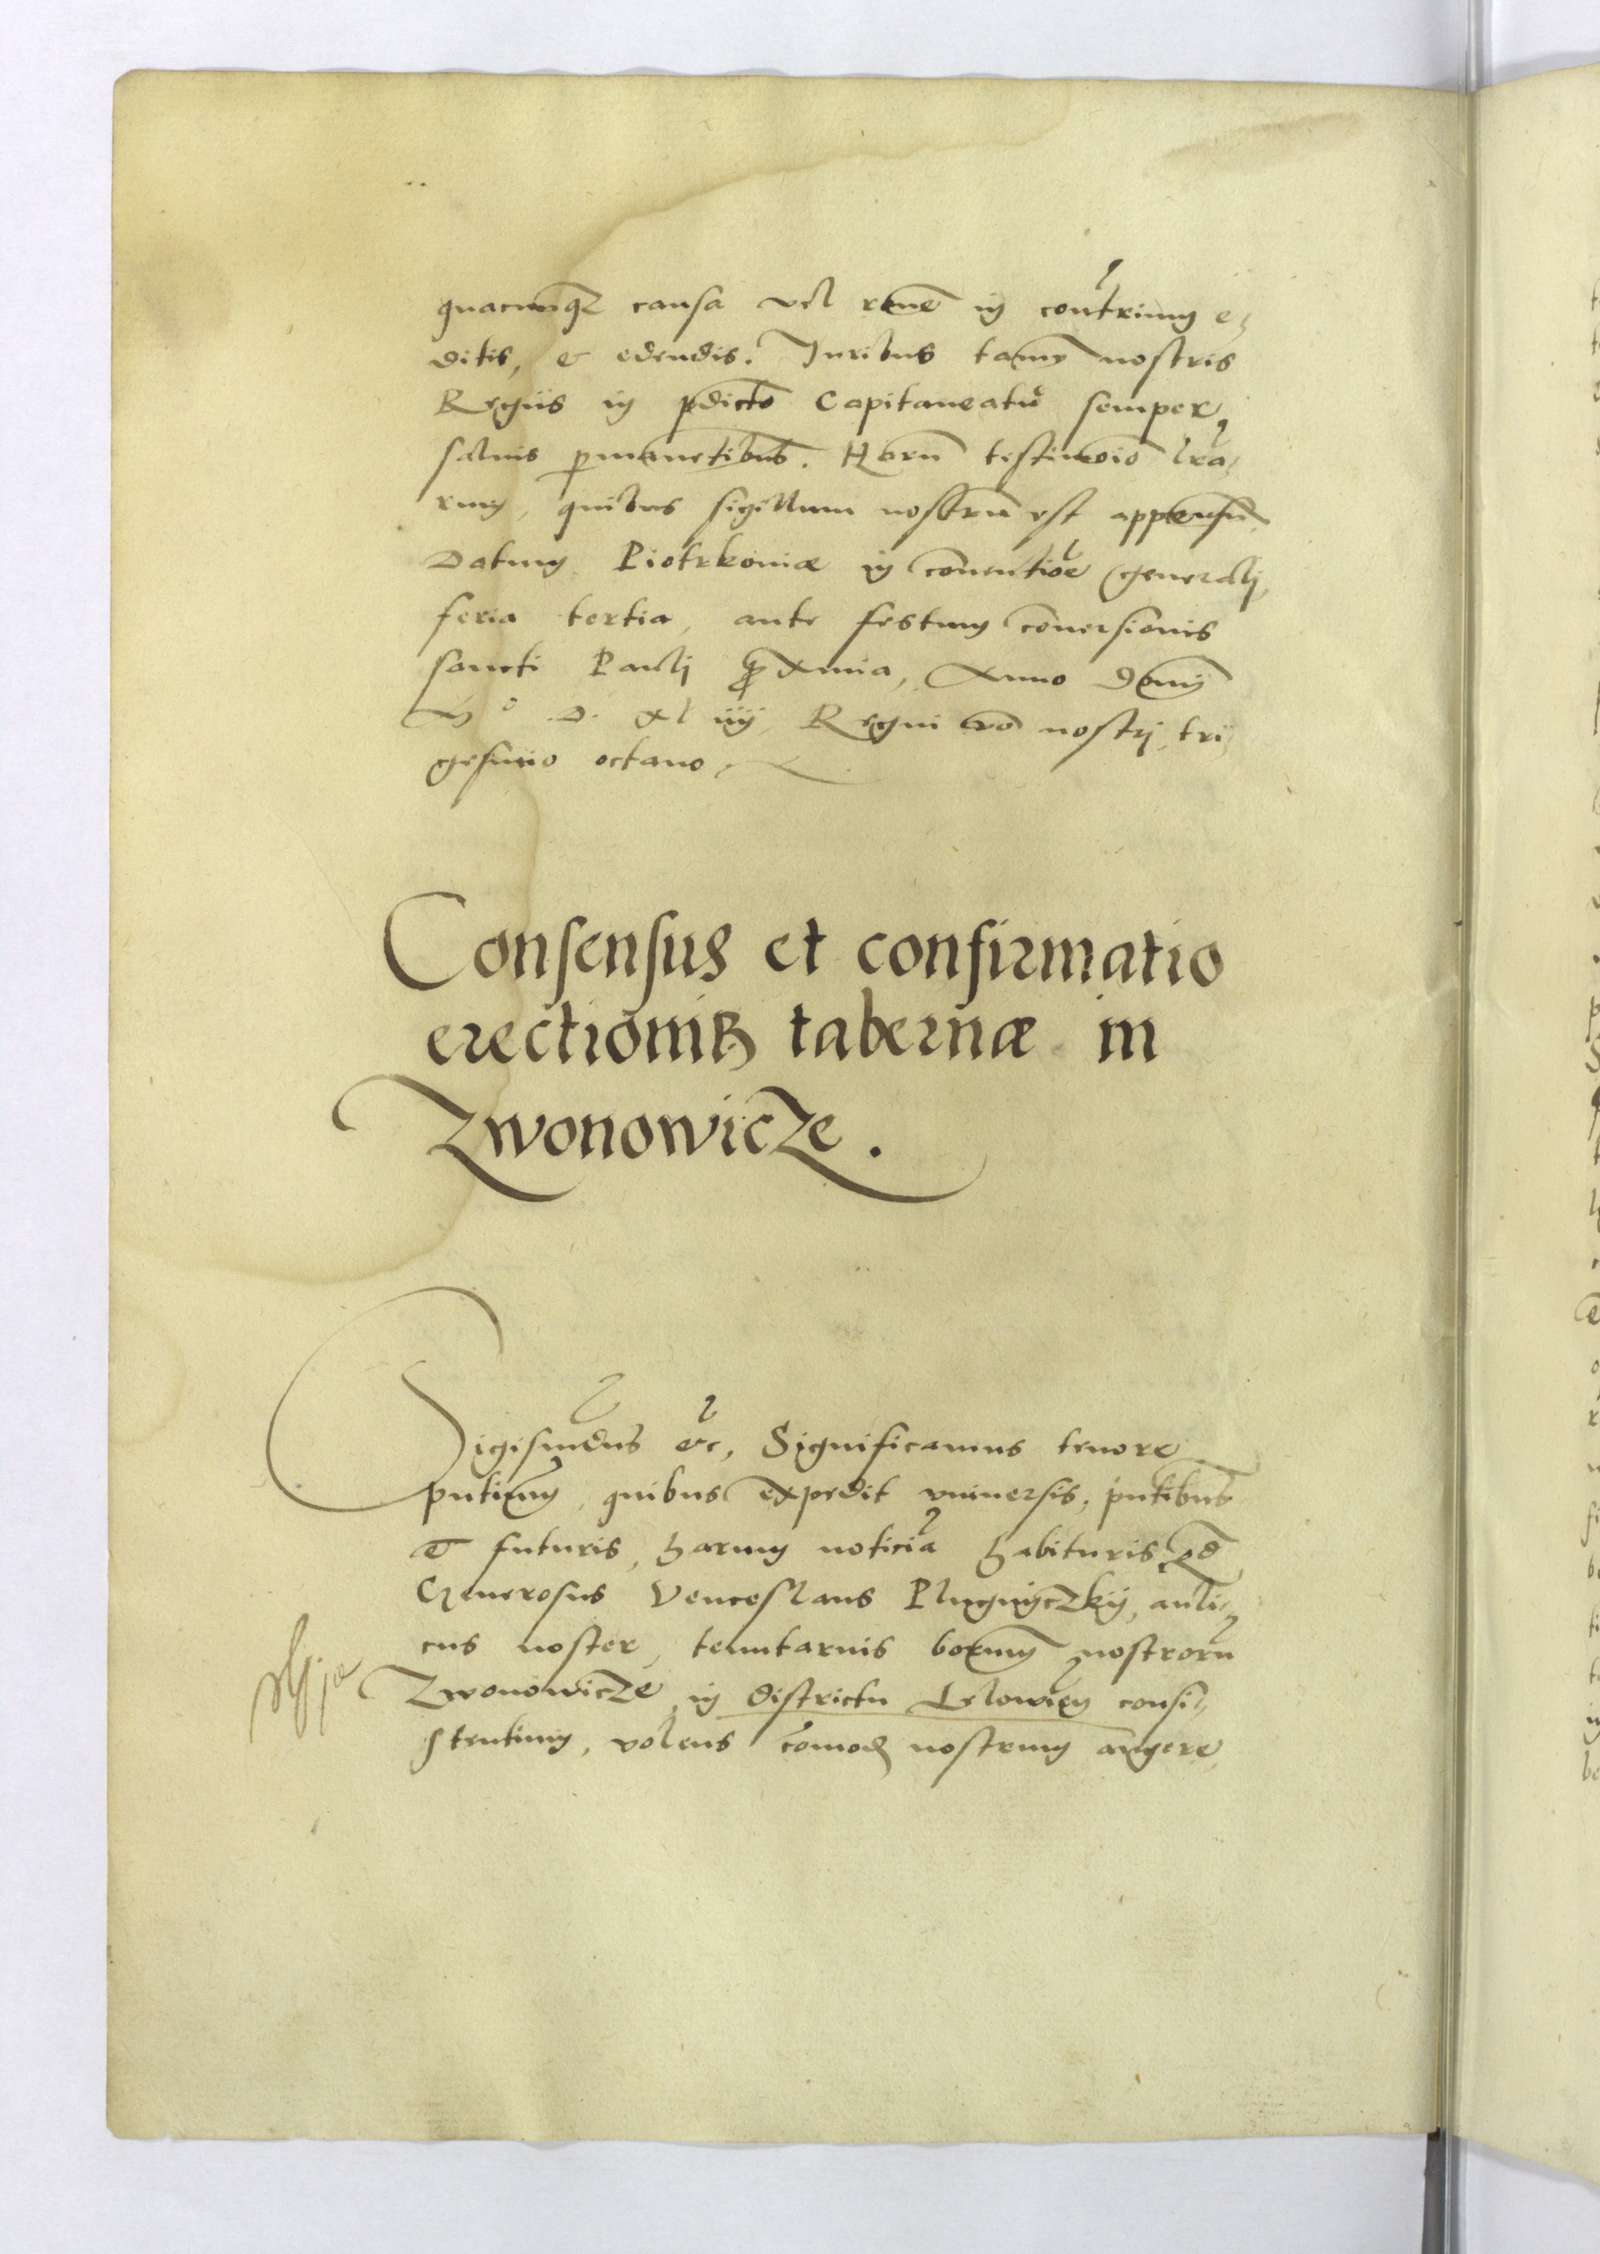 quacunq₃ causa vel rōne in contrium e-
ditis, & edendis. Iuribus tamen nostris
Regiis in pdicto Capitaneatu semper
saluis pmanētibus. Harū testimoīo lrā-
rum, quibus sigillum nostrū est appensū.
Datum Piotrkoviæ in conventiōe generali,
feria tertia, ante festum conversionis
sancti Pauli proxima, Anno Domī
Mº D. xl iiij, Regni vēo nostri, tri-
gesimo octavo.
Consensus et confirmatio
erectionis tabernæ in
Zwonowicze.
Sigismūdus &c, Significamus tenore
pntium, quibus expedit vniuersis, pntibus
et futuris, harum noticiā habituris, qd
Generosus Venceslaus Plugnyczkij, auli-
cus noster, tenutarius bonum nostrorū
Zwonowicze, in districtu Lelowien consi-
stentium, volens cōmodū nostrum augere,